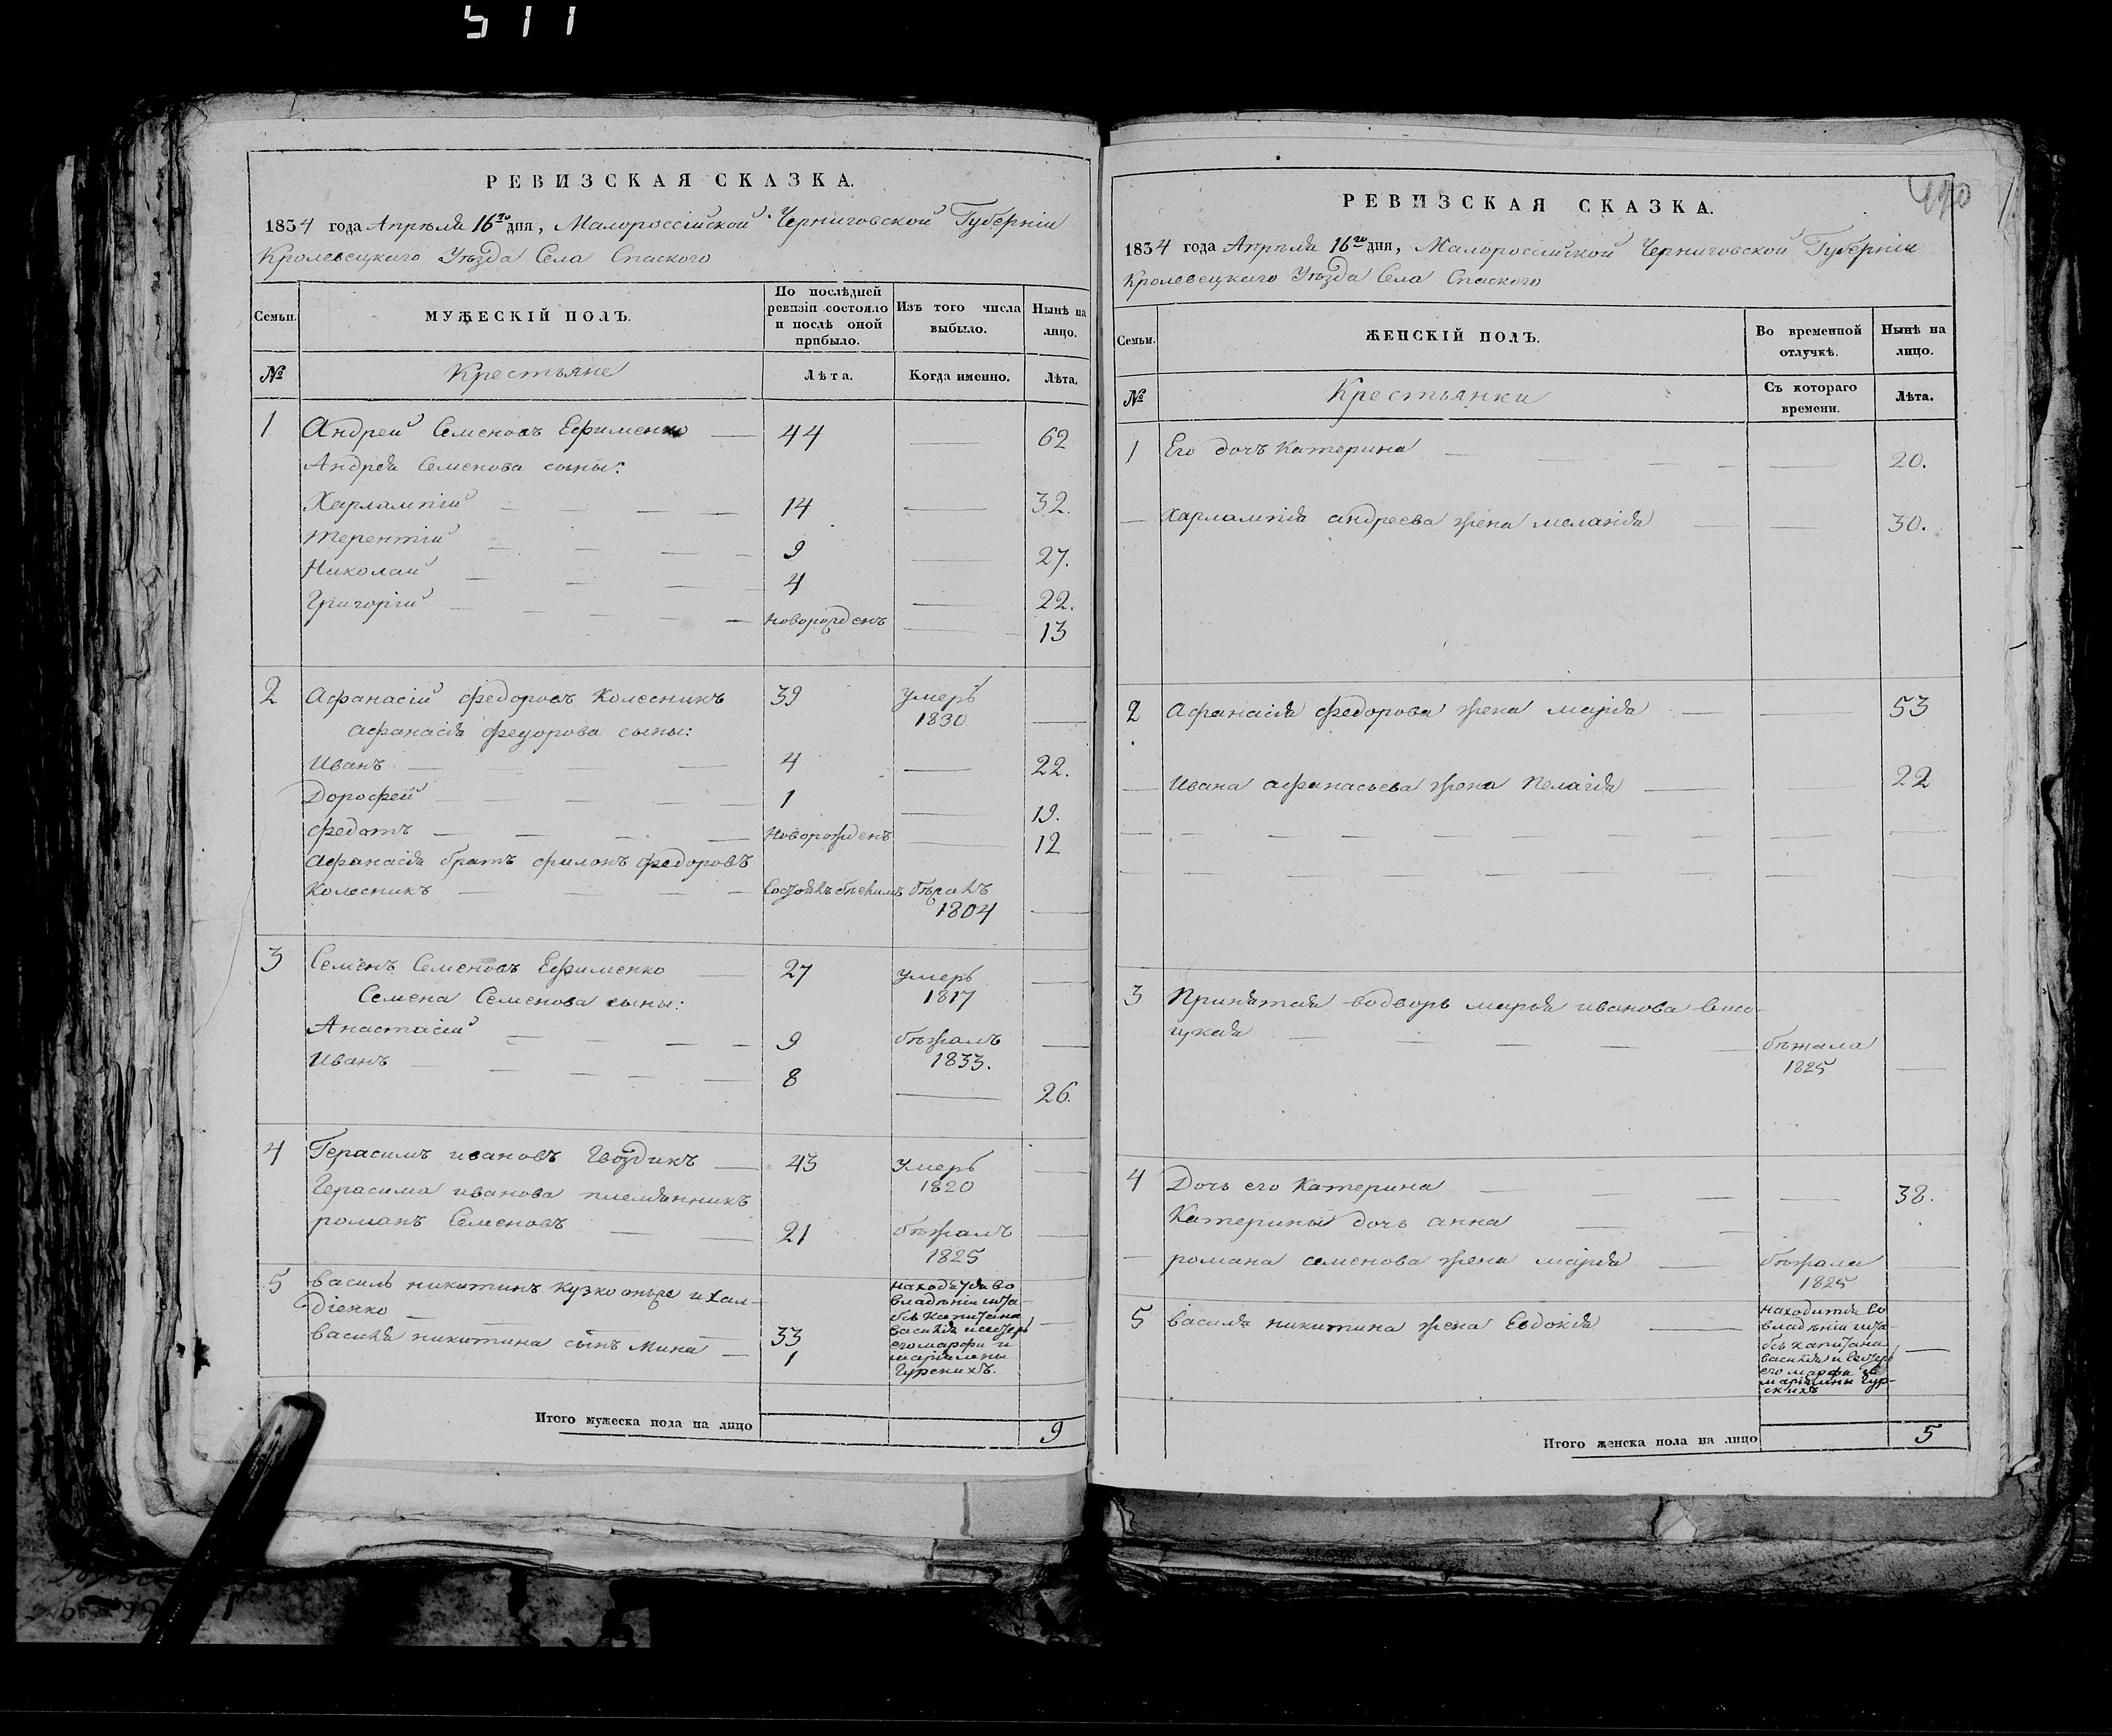 511
РЕВИЗСКАЯ СКАЗКА.
1834 года Апрѣля 16го дня, Малороссійской Черниговской Губерніи
Кролевецкаго Уѣзда Села Спаского
Семьи.
МУЖЕСКІЙ ПОЛЪ.
По послѣдней ревизіи состояло и послѣ оной прибыло.
Изъ того числа выбыло.
Нынѣ на лицо.
№
Крестьяне
Лѣта.
Когда именно.
Лѣта.
1 Андрей Семеновъ Ефименко — 44 — 62
Андрея Семенова сыны:
Харлампій — 14 — 32.
Терентій — 9 — 27.
Николай — 4 — 22.
Григорій — новорожденъ — 13
2 Афанасій Федоровъ Колесникъ 39 умеръ 1830 —
Афанасія Федорова сыны:
Иванъ — 4 — 22.
Дорофей — 1 — 19.
Федотъ — новорожденъ — 12
Афанасія братъ Филонъ Федоровъ
Колесникъ — бѣжалъ 1804 —
3 Семенъ Семеновъ Ефименко — 27 умеръ 1817 —
Семена Семенова сыны:
Анастасій — 9 бѣжалъ 1833. —
Иванъ — 8 — 26.
4 Герасимъ Ивановъ Гвоздикъ — 43 умеръ 1820 —
Герасима Иванова племянникъ
Романъ Семеновъ — 21 бѣжалъ 1825 —
5 Василь Никитинъ Кузко
діенко — 33
Василя Никитина сынъ Мина — 1
находятся во
владѣніи шта
бсъ капитана
Василя и сестеръ
его Марфи и
Маріямны
Гурскихъ.
Итого мужеска пола на лицо 9
490
РЕВИЗСКАЯ СКАЗКА.
1834 года Апрѣля 16го дня, Малороссійской Черниговской Губерніи
Кролевецкаго Уѣзда Села Спаского
Семьи.
ЖЕНСКІЙ ПОЛЪ.
Во временной отлучкѣ.
Нынѣ на лицо.
№
Крестьянки
Съ котораго времени.
Лѣта.
1 Его дочъ Катерина — 20.
— Харлампія Андреева жена Меланія — 30.
2 Афанасія Федорова жена Марія — 53
— Ивана Афанасьева жена Пелагія — 22
3 Принятая водворъ Марья Иванова Висо-
цкая — бѣжала 1825 —
4 Дочь его Катерина — 38.
Катерины дочь Анна
— Романа Семенова жена Марія — бѣжала 1825 —
5 Василя Никитина жена Евдокія —
находится во
владѣніи шта-
бсъ капитана
Василя и сестеръ
его Марфи и
Маріямны Гур-
скихъ
Итого женска пола на лицо 5